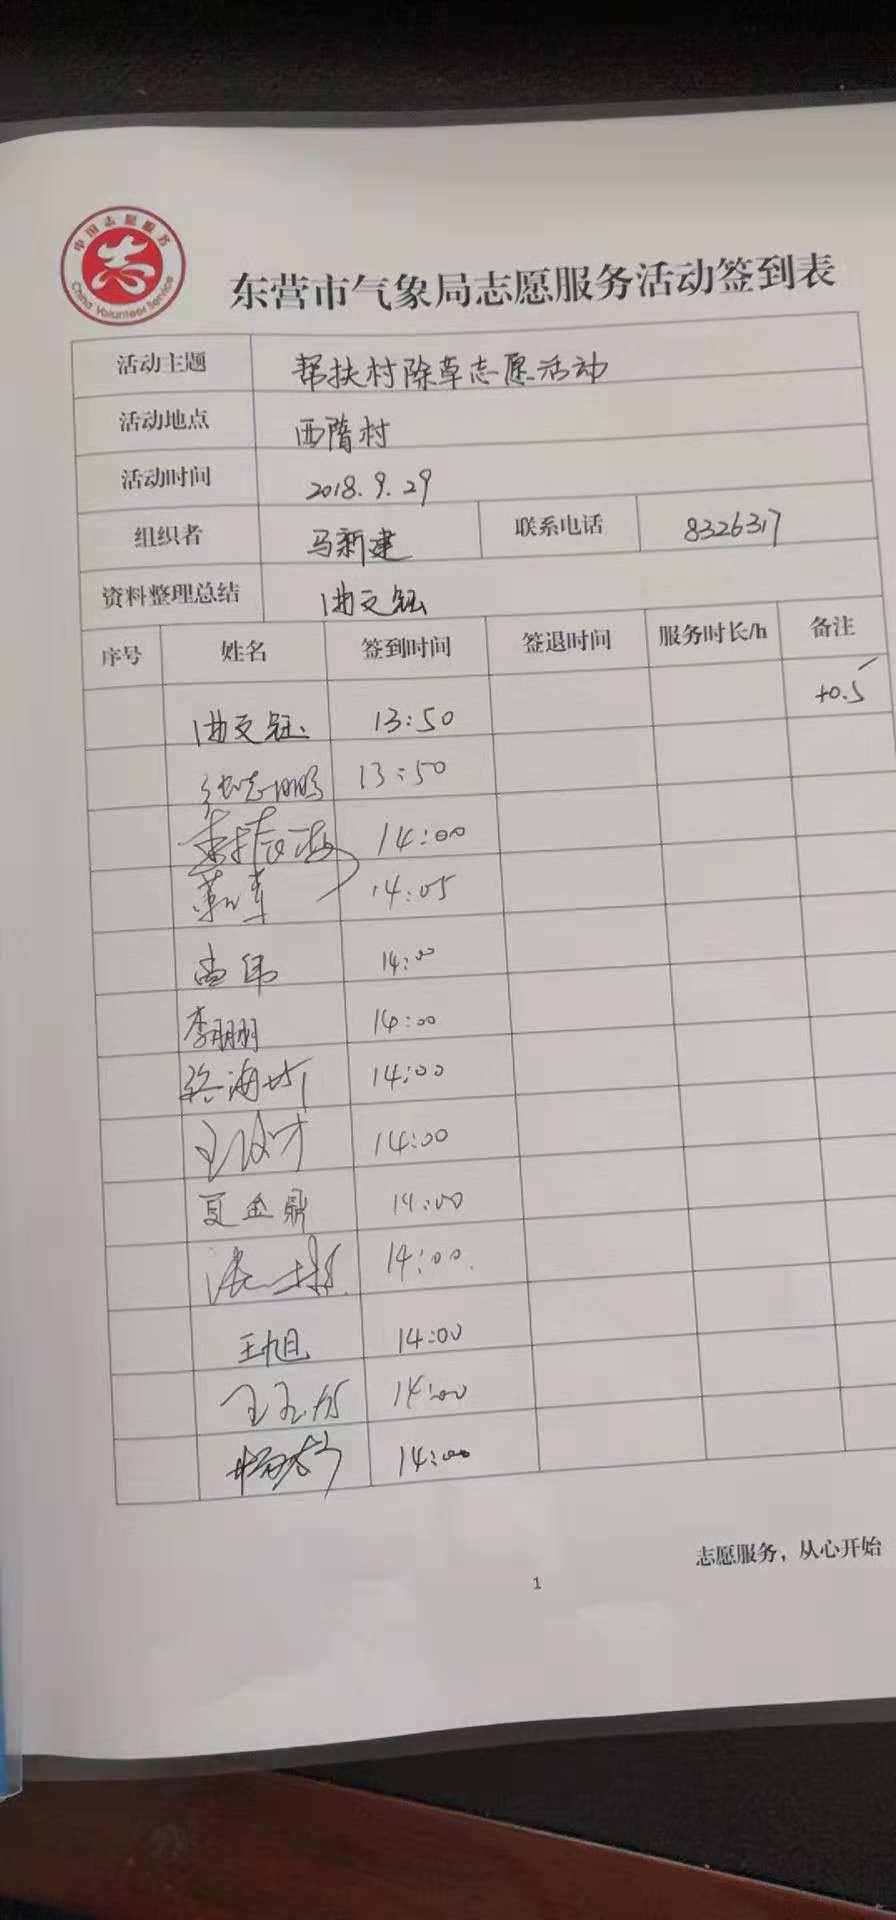 中国志愿服务
志
China Volunteer Service
东营市气象局志愿服务活动签到表
活动主题 帮扶村除草志愿活动
活动地点 西隋村
活动时间 2018.9.29
组织者 马新建 联系电话 8326317
资料整理总结 曲文钰
序号 姓名 签到时间 签退时间 服务时长/h 备注
曲文钰 13:50 +0.5
13:50
14:00
14:05
尚伟 14:00
李鹏 14:00
14:00
14:00
夏金鼎 14:00
14:00
王旭 14:00
14:00
14:00
志愿服务，从心开始
1